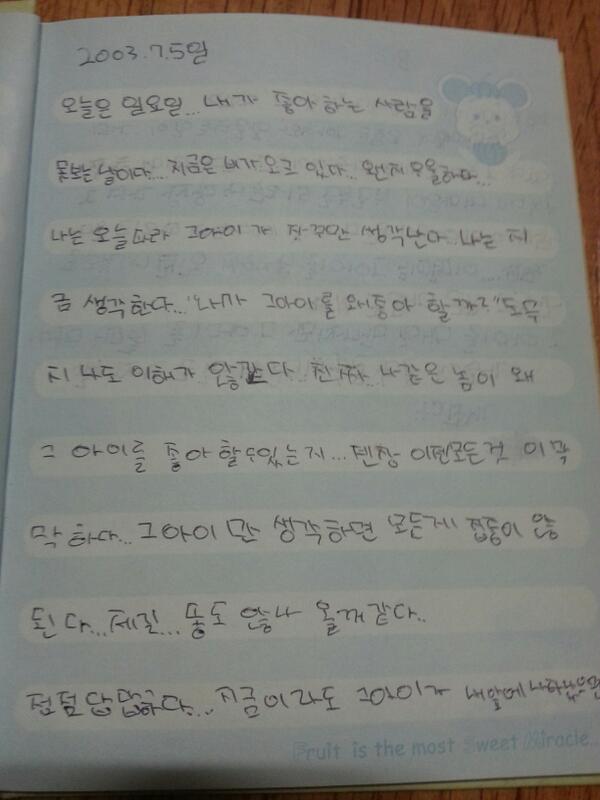 2003.7.5일
오늘은 일요일... 내가 좋아 하는 사람을
못보는 날이다... 지금은 비가 오고 있다... 왠지 우울하다...
나는 오늘따라 그아이가 자꾸만 생각난다 나는 지
금 생각한다... "나가 그아이를 왜좋아 할까?" 도무
지 나도 이해가 않간다.. 진짜 나같은 놈이 왜
그 아이를 좋아 할수있는지... 젠장 이젠모든것 이 막
막 하다... 그아이 만 생각하면 모든게 집중이 않
된다... 제길... 똥도 않나 올꺼같다..
점점답답하다... 지금이라도 그아이가 내앞에
Fruit is the most Sweet Miracle...